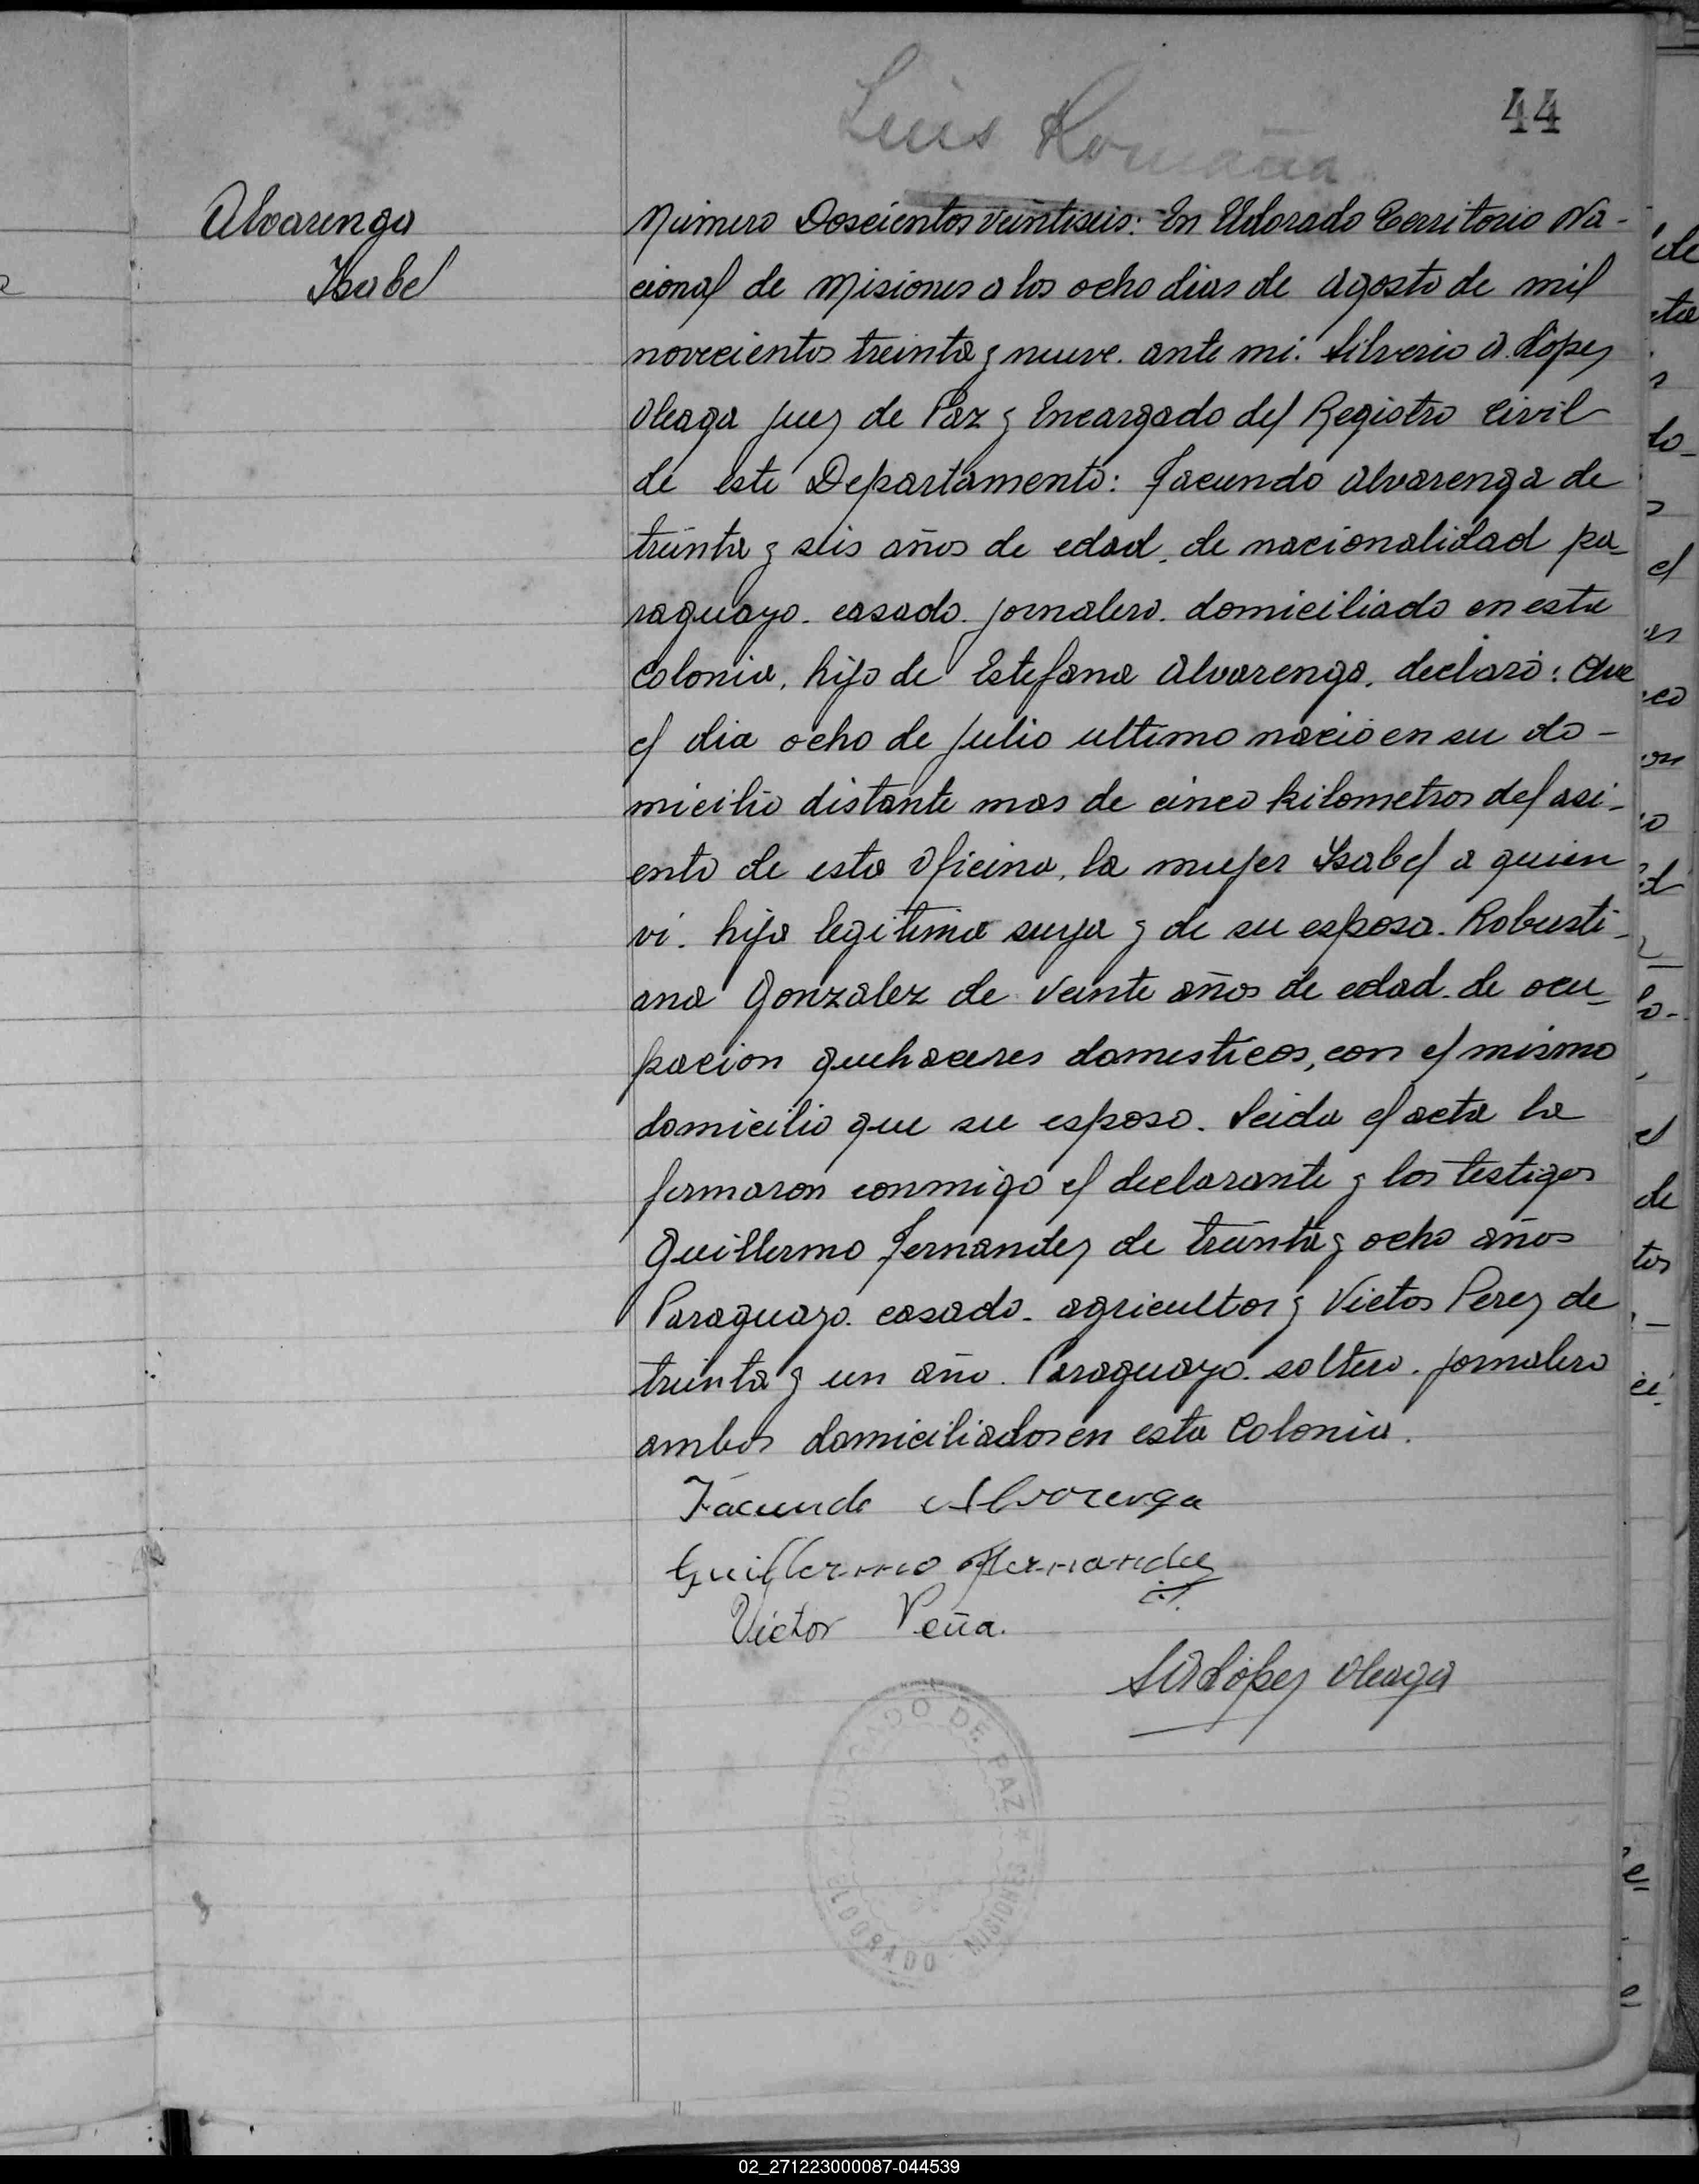 Luis Romaña
44
Alvarenga
Isabel
Número Doscientos veintiseis: En Eldorado Territorio Na-
cional de Misiones a los ocho dias de agosto de mil
novecientos treinta y nueve. ante mi. Silverio A. López
Oleaga Juez de Paz y Encargado del Registro Civil
de este Departamento: Facundo Alvarenga de
treinta y seis años de edad, de nacionalidad pa-
raguayo. casado. jornalero. domiciliado en esta
Colonia, hijo de Estefana Alvarenga, declaró: Que
el dia ocho de Julio ultimo nació en su do-
micilio distante mas de cinco kilometros del asi-
ento de esta Oficina, la mujer Isabel a quien
vi. hija legitima suya y de su esposa. Robusti-
ana Gonzalez de veinte años de edad. de ocu-
pacion quehaceres domesticos, con el mismo
domicilio que su esposo. Leida el acta la
firmaron conmigo el declarante y los testigos
Guillermo Fernandez de treinta y ocho años
Paraguayo. casado. agricultor y Victor Perez de
treinta y un año. Paraguayo. soltero. jornalero
ambos domiciliados en esta Colonia.
Facundo Alvarenga
Guillermo Fernandez
Victor Peña.
S A López Oleaga
JUZGADO DE PAZ
ELDORADO - MISIONES
02_271223000087-044539